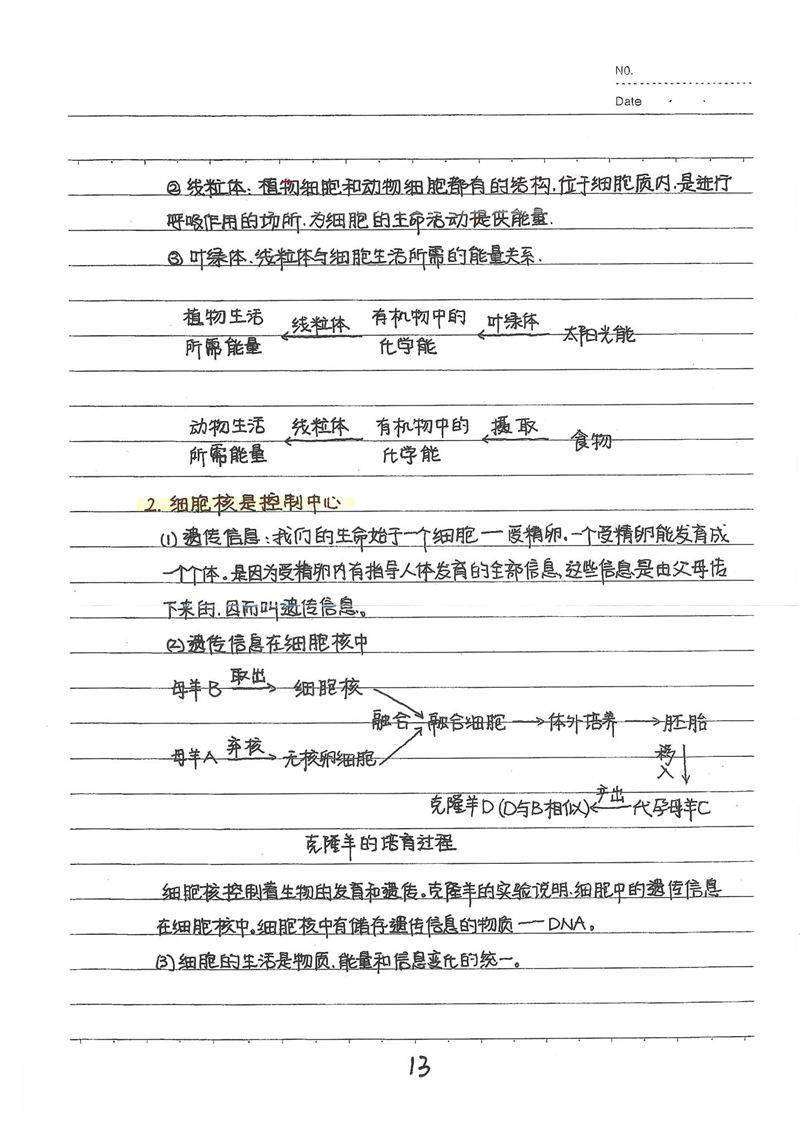 NO.
Date
②线粒体：植物细胞和动物细胞都有的结构，位于细胞质内，是进行
呼吸作用的场所，为细胞的生命活动提供能量.
③叶绿体、线粒体与细胞生活所需的能量关系.
植物生活 线粒体 有机物中的 叶绿体 太阳光能
所需能量 化学能
动物生活 线粒体 有机物中的 摄取 食物
所需能量 化学能
2. 细胞核是控制中心
(1)遗传信息：我们的生命始于一个细胞—受精卵.一个受精卵能发育成
一个个体.是因为受精卵内有指导人体发育的全部信息,这些信息是由父母传
下来的,因而叫遗传信息。
(2)遗传信息在细胞核中
母羊B 取出 细胞核
融合 融合细胞 → 体外培养 → 胚胎
母羊A 弃核 无核卵细胞
移入
克隆羊D(D与B相似) 产出 代孕母羊C
克隆羊的培育过程
细胞核控制着生物的发育和遗传。克隆羊的实验说明,细胞中的遗传信息
在细胞核中。细胞核中有储存遗传信息的物质—DNA。
(3)细胞的生活是物质,能量和信息变化的统一。
13